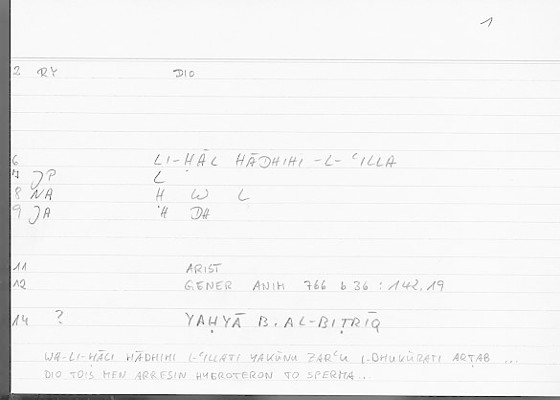 1
2 RY DIO
6 LI-ḤĀL HĀDHIHI -L- ʿILLA
7 JP L
8 NA H W L
9 JA 'H DH
11 ARIST
12 GENER ANIM 766 b 36 : 142.19
14 ? YAḤYĀ B. AL-BIṬRĪQ
WA-LI-ḤĀLI HĀDHIHI L-ʿILLATI YAKŪNU ZARʿU L-DHUKŪRATI ARṬAB ...
DIO TOIS MEN ARRESIN HYGROTERON TO SPERMA...